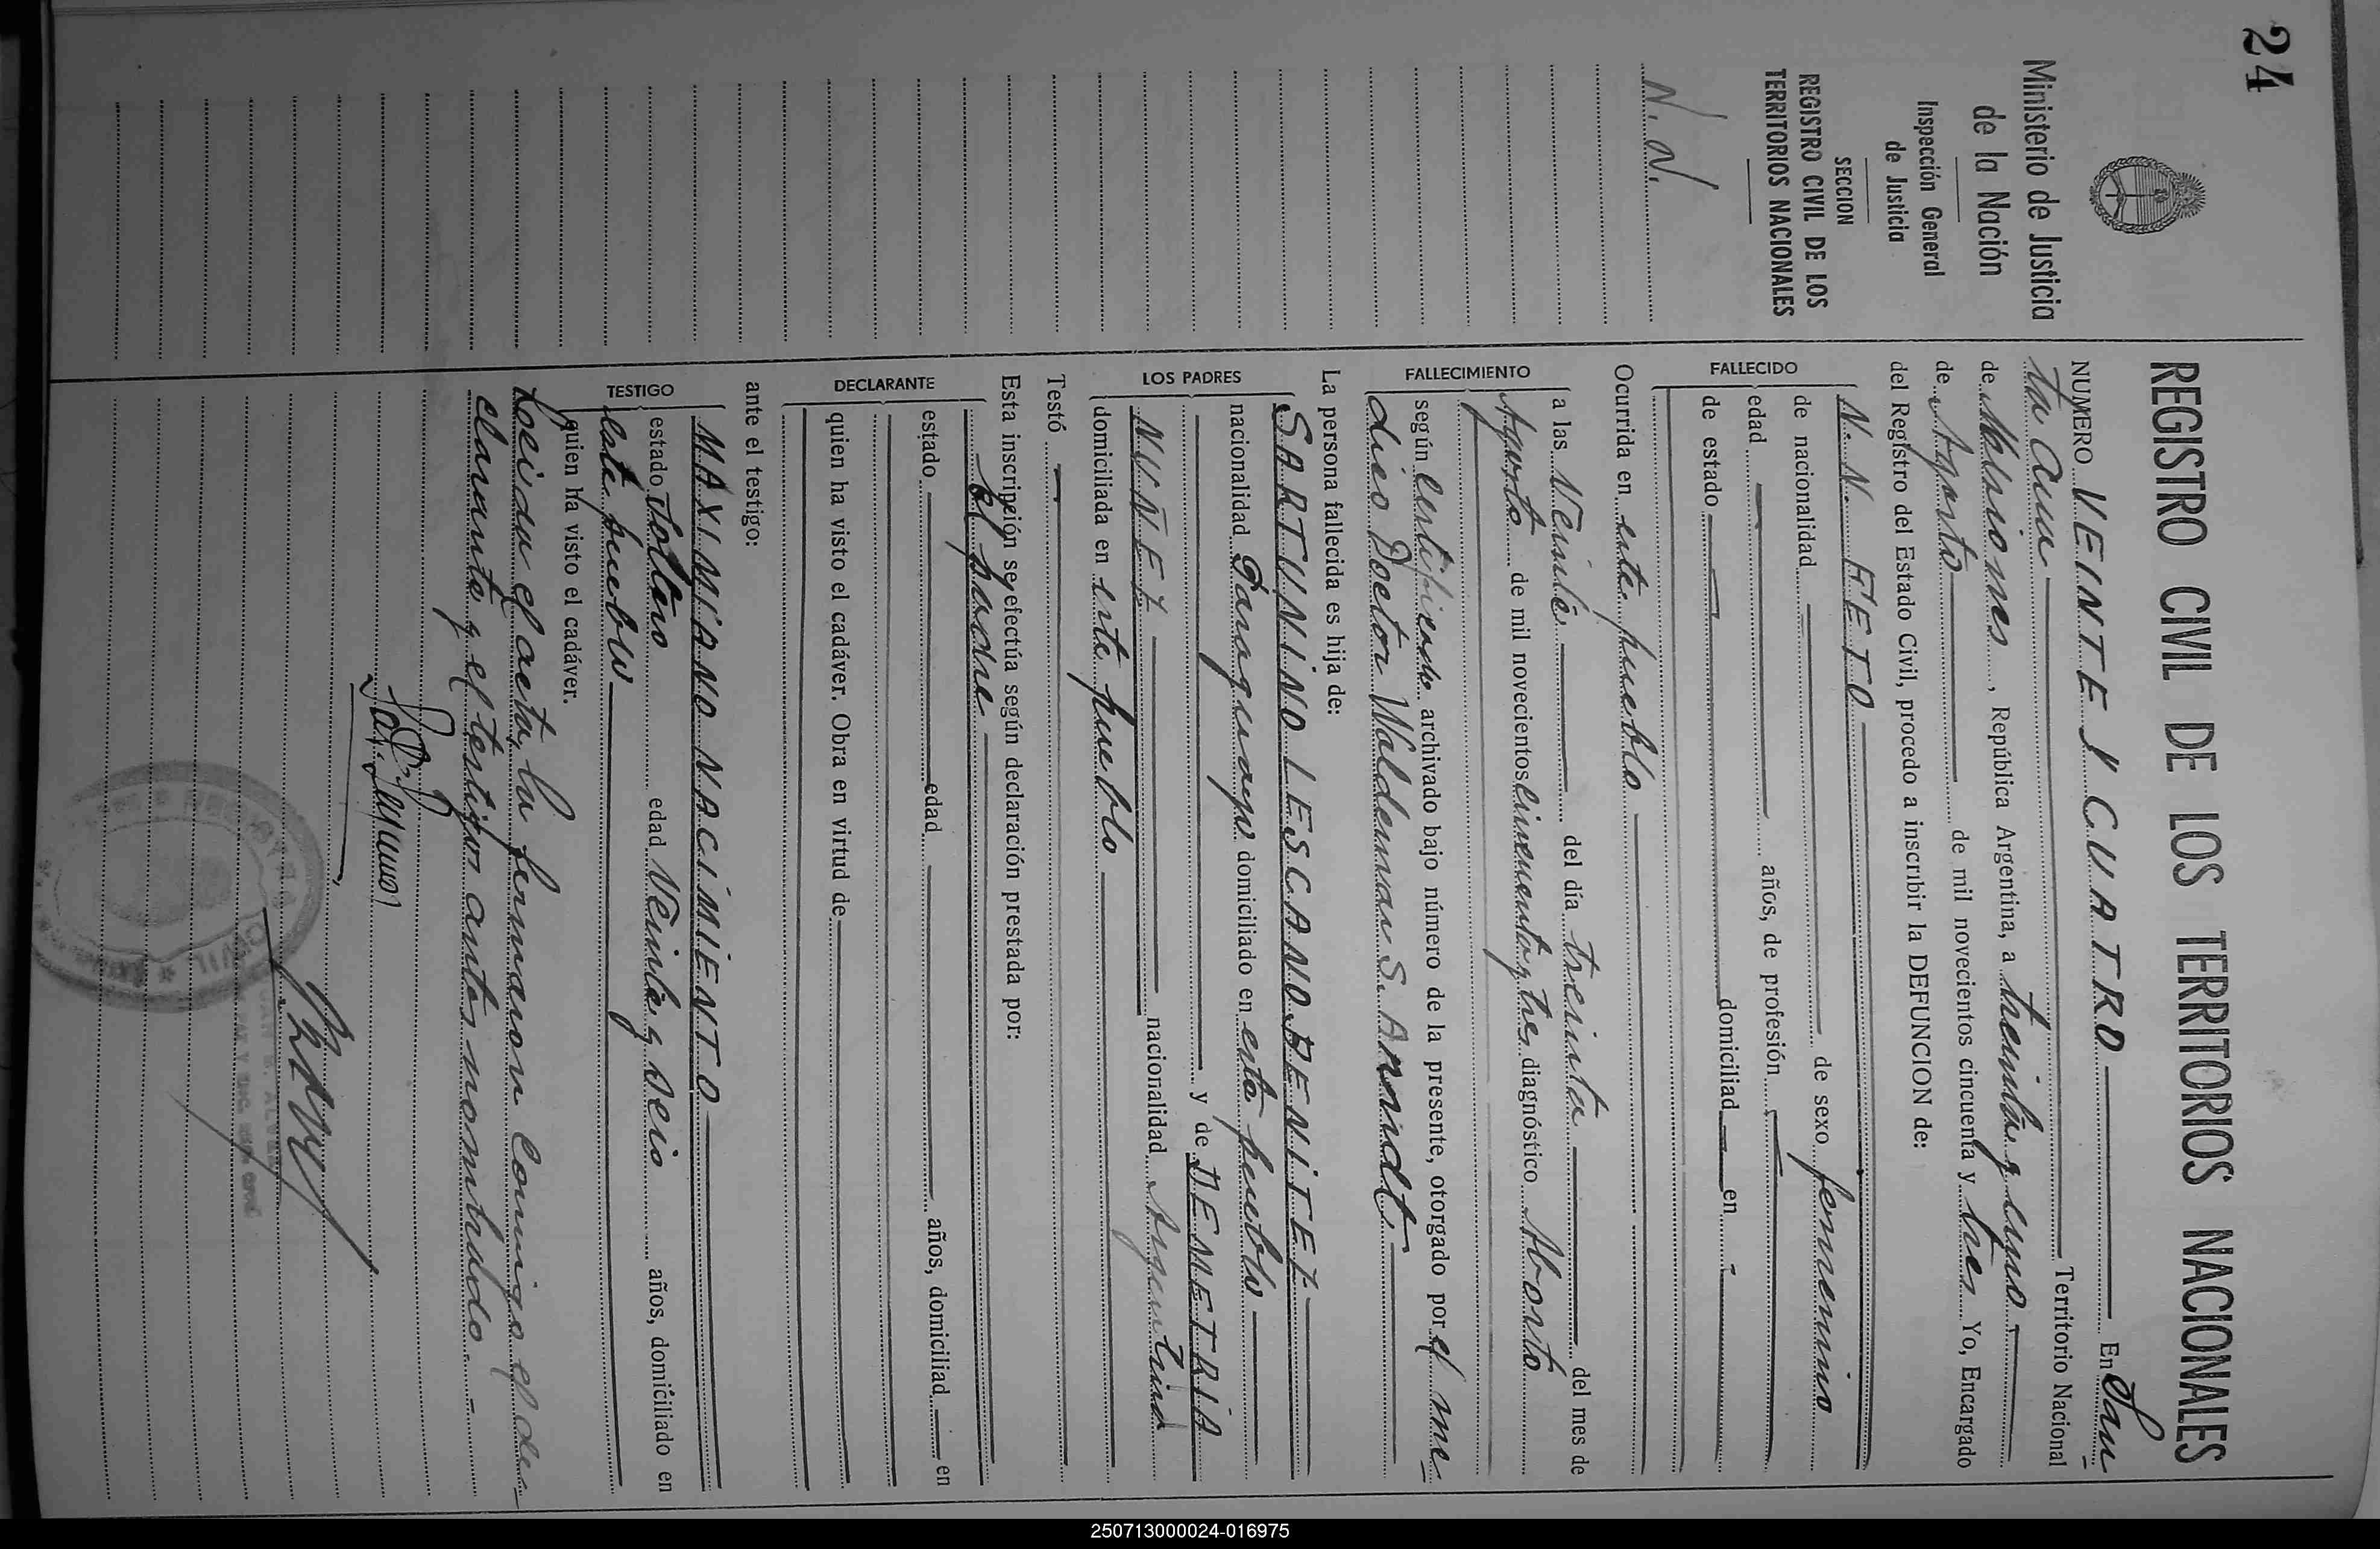 24
Ministerio de Justicia
de la Nación
Inspección General
de Justicia
SECCION
REGISTRO CIVIL DE LOS
TERRITORIOS NACIONALES
N. N.
REGISTRO CIVIL DE LOS TERRITORIOS NACIONALES
NUMERO VEINTE Y CUATRO En San
ta Ana Territorio Nacional
de Misiones, República Argentina, a treinta y uno
de Agosto de mil novecientos cincuenta y tres Yo, Encargado
del Registro del Estado Civil, procedo a inscribir la DEFUNCION de:
FALLECIDO
N. N. FETO
de nacionalidad de sexo femenino
edad años, de profesión
de estado domiciliad en
Ocurrida en este pueblo
FALLECIMIENTO
a las Veinte del día treinta del mes de
Agosto de mil novecientos cincuenta y tres diagnóstico Aborto
según certificado archivado bajo número de la presente, otorgado por el me
dico Doctor Waldemar S. Arndt.
La persona fallecida es hija de:
LOS PADRES
SARTUNINO LESCANO BENITEZ
nacionalidad Paraguayo domiciliado en este pueblo
y de DEMETRIA
NUÑEZ nacionalidad Argentina
domiciliada en este pueblo
Testó
Esta inscripción se efectúa según declaración prestada por:
DECLARANTE
el padre
estado edad años, domiciliad en
quien ha visto el cadáver. Obra en virtud de
ante el testigo:
TESTIGO
MAXIMIANO NACIMIENTO
estado Soltero edad Veinte y seis años, domiciliado en
este pueblo
quien ha visto el cadáver.
Leida el acta, la firmaron conmigo el de
clarante y el testigo antes nombrado. -
250713000024-016975